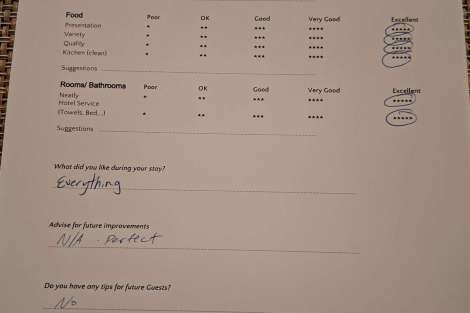 Food Poor OK Good Very Good Excellent
Presentation * ** *** **** *****
Variety * ** *** **** *****
Quality * ** *** **** *****
Kitchen (clean) * ** *** **** *****
Suggestions
Rooms/ Bathrooms Poor OK Good Very Good Excellent
Neatly * ** *** **** *****
Hotel Service
(Towels, Bed,..) * ** *** **** *****
Suggestions
What did you like during your stay?
Everything
Advise for future improvements
N/A - Perfect
Do you have any tips for future Guests?
No